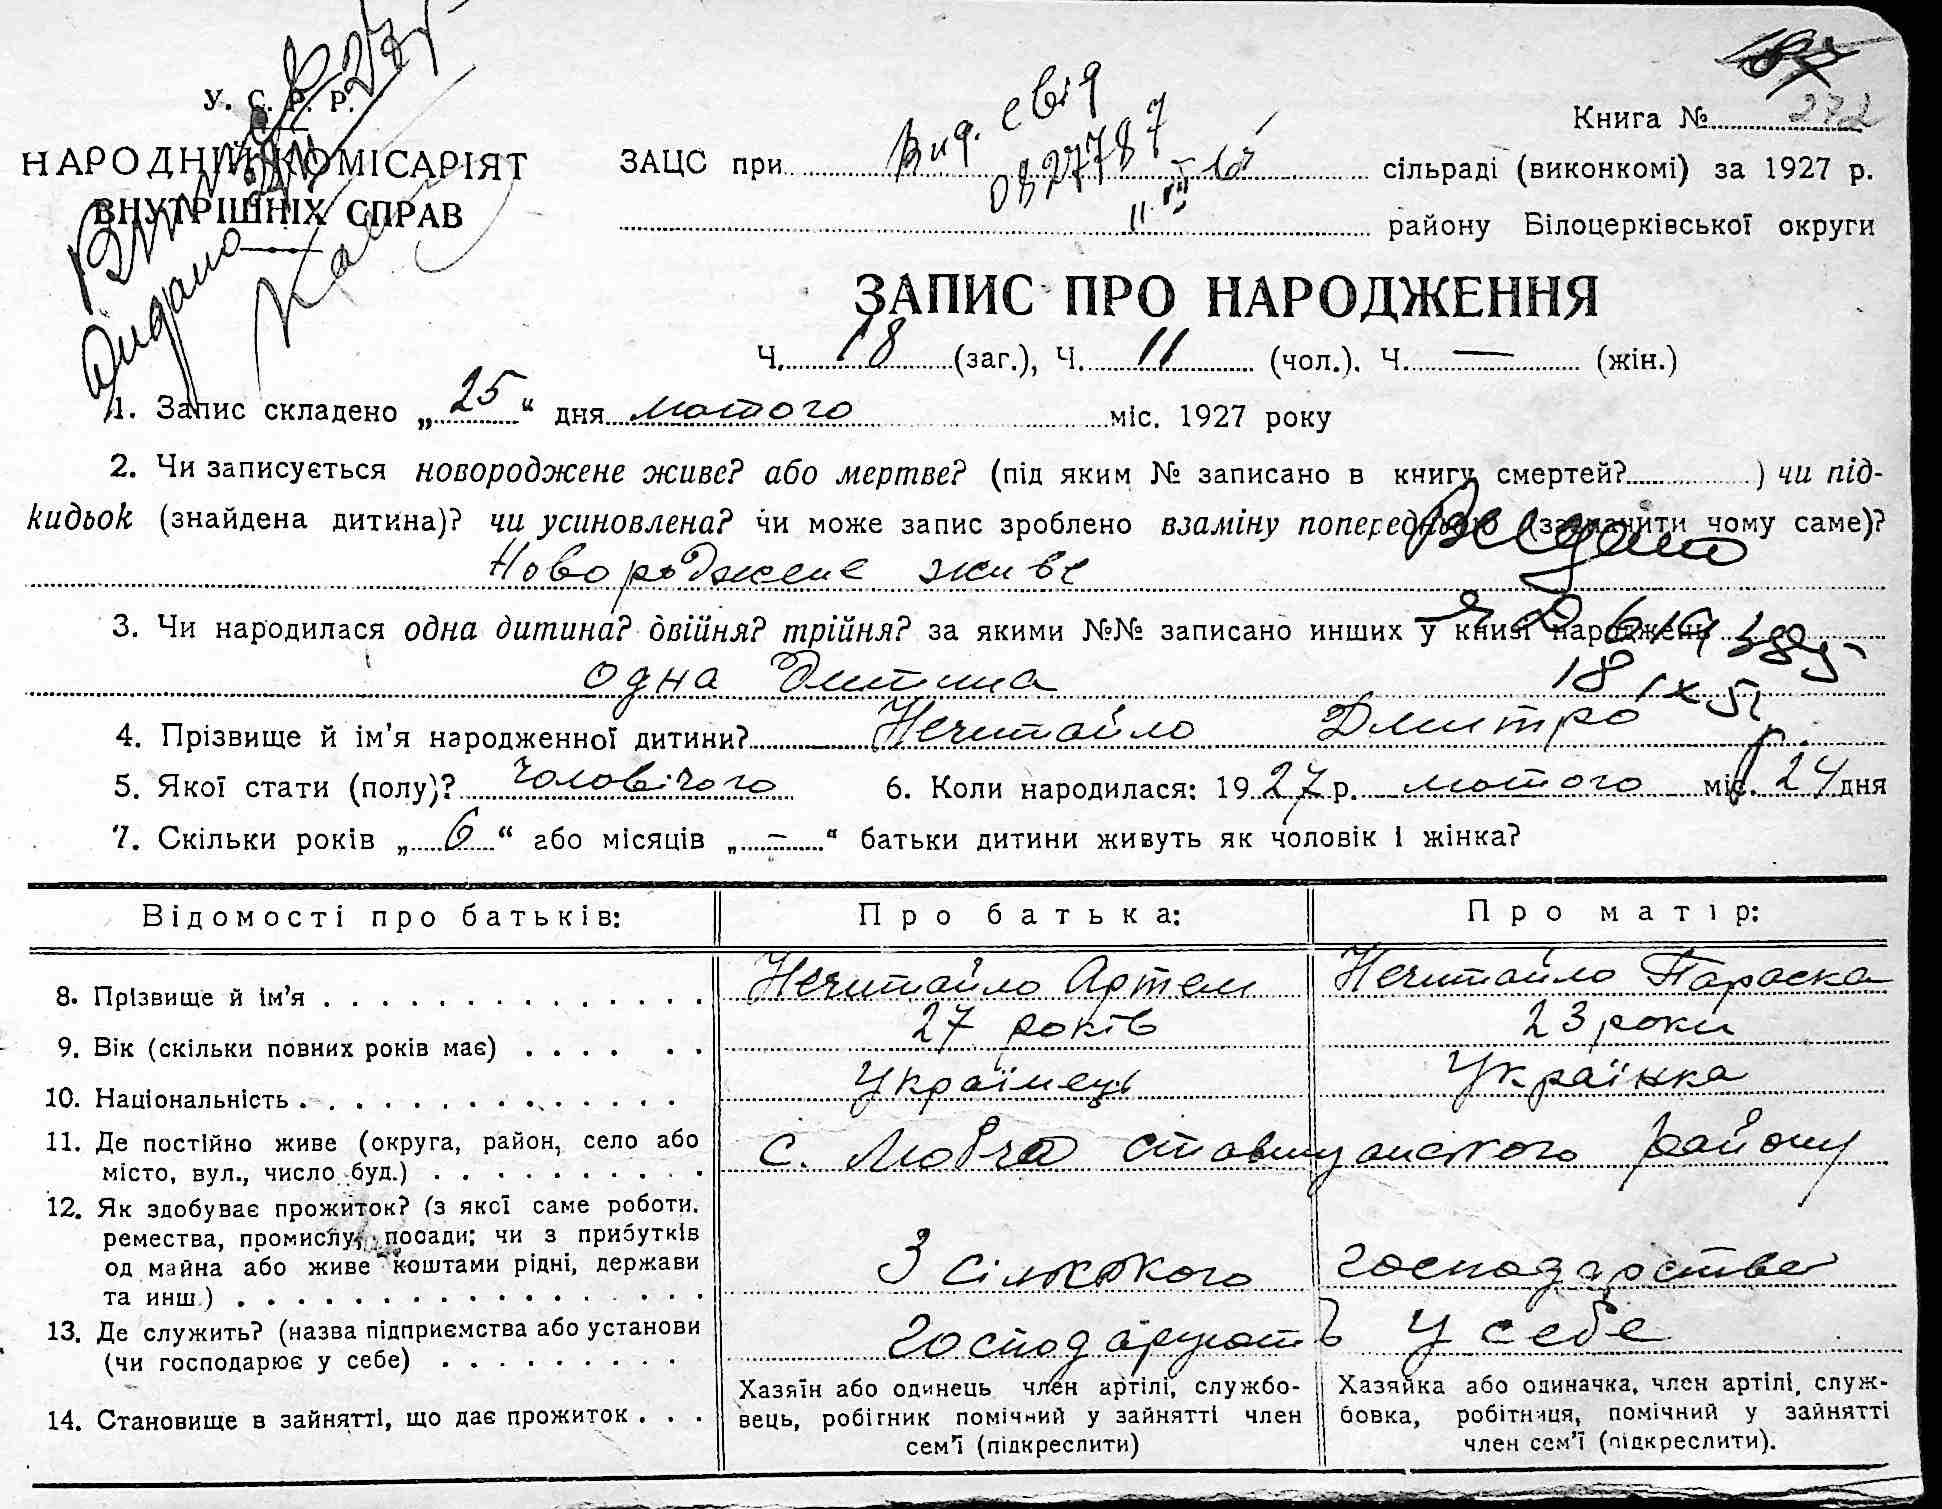 У. С. Р. Р.
НАРОДНІЙ КОМІСАРІЯТ
ВНУТРІШНІХ СПРАВ
Видано
187
Книга № 272
ЗАЦС при сільраді (виконкомі) за 1927 р.
Вид. свід
0827787
району Білоцерківської округи
ЗАПИС ПРО НАРОДЖЕННЯ
Ч. 18 (заг.), Ч. 11 (чол.). Ч. — (жін.)
1. Запис складено „ 25 “ дня лютого міс. 1927 року
2. Чи записується новороджене живе? або мертве? (під яким № записано в книгу смертей? ) чи під-
кидьок (знайдена дитина)? чи усиновлена? чи може запис зроблено взаміну попереднього (зазначити чому саме)?
Видано
Новороджене живе
3. Чи народилася одна дитина? двійня? трійня? за якими №№ записано инших у книзі народжень
одна дитина
18 IX 51 р.
4. Прізвище й ім'я народженної дитини? Нечитайло Дмитро
5. Якої стати (полу)? чоловічого 6. Коли народилася: 1927 р. лютого міс. 24 дня
7. Скільки років „ 6 “ або місяців „ – “ батьки дитини живуть як чоловік і жінка?
Відомості про батьків: Про батька: Про матір:
8. Прізвище й ім'я . . . . . . . . . . . . . . Нечитайло Артем Нечитайло Параска
9. Вік (скільки повних років має) . . . . . . 27 років 23 роки
10. Національність . . . . . . . . . . . . . . Українець Українка
11. Де постійно живе (округа, район, село або
місто, вул., число буд.) . . . . . . . . . . с. Любча ставищанського району
12. Як здобуває прожиток? (з якої саме роботи.
ремества, промислу, посади; чи з прибутків
од майна або живе коштами рідні, держави
та инш.) . . . . . . . . . . . . . . . . З сільського господарства
13. Де служить? (назва підприємства або установи
(чи господарює у себе) . . . . . . . . . господарують у себе
14. Становище в зайнятті, що дає прожиток . . .
Хазяїн або одинець член артілі, службо-
вець, робігник помічний у зайнятті член
сем'ї (підкреслити)
Хазяйка або одиначка, член артілі, служ-
бовка, робітниця, помічний у зайнятті
член сем'ї (підкреслити).